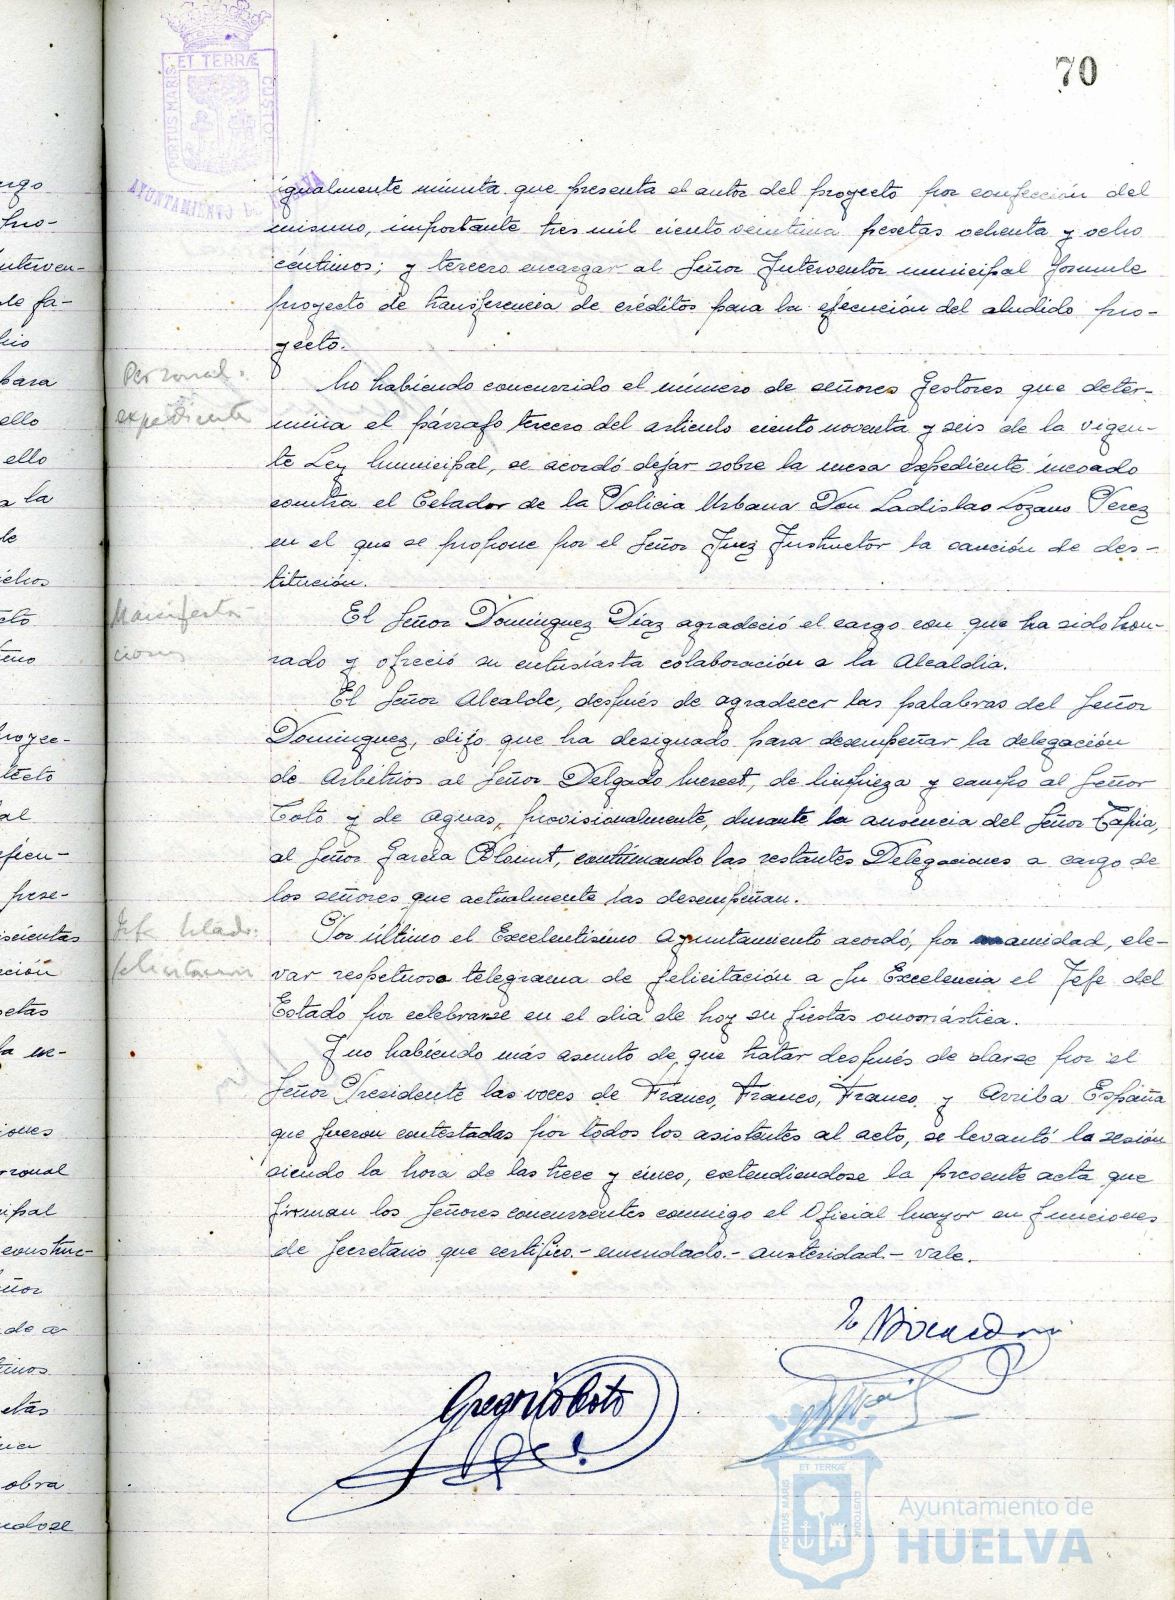 70
ET TERRÆ
PORTUS MARIS
CUSTOD
AYUNTAMIENTO DE HUELVA
igualmente minuta que presenta el autor del proyecto por confección del
mismo, importante tres mil ciento veintiuna pesetas ochenta y ocho
céntimos; y tercero encargar al Señor Interventor municipal formule
proyecto de transferencia de créditos para la ejecución del aludido pro-
yecto.
Personal.
expediente
No habiendo concurrido el número de señores Gestores que deter-
mina el párrafo tercero del articulo ciento noventa y seis de la vigen-
te Ley Municipal, se acordó dejar sobre la mesa expediente incoado
contra el Celador de la Policia Urbana Don Ladislao Lozano Perez
en el que se propone por el Señor Juez Instructor la sanción de des-
titución.
Manifesta-
ciones
El Señor Dominguez Díaz agradeció el cargo con que ha sido hon-
rado y ofreció su entusiasta colaboración a la Alcaldia.
El Señor Alcalde, después de agradecer las palabras del Señor
Dominguez, dijo que ha designado para desempeñar la delegación
de Arbitrios al Señor Delgado, de limpieza y campo al Señor
Coto y de Aguas, provisionalmente, durante la ausencia del Señor Tapia,
al Señor García Blount, continuando las restantes Delegaciones a cargo de
los señores que actualmente las desempeñan.
Jefe Estado.
felicitación
Por último el Excelentísimo Ayuntamiento acordó, por unanimidad, ele-
var respetuoso telegrama de felicitación a Su Excelencia el Jefe del
Estado por celebrarse en el dia de hoy su fiestas onomástica.
Y no habiendo más asunto de que tratar después de darse por el
Señor Presidente las voces de Franco, Franco, Franco y Arriba España
que fueron contestadas por todos los asistentes al acto, se levantó la sesión
siendo la hora de las trece y cinco, extendiendose la presente acta que
firman los Señores concurrentes conmigo el Oficial Mayor en funciones
de Secretario que certifico.- enmendado.- austeridad.- vale.
Gregorio Coto
ET TERRÆ
PORTUS MARIS
CUSTODIA
Ayuntamiento de
HUELVA